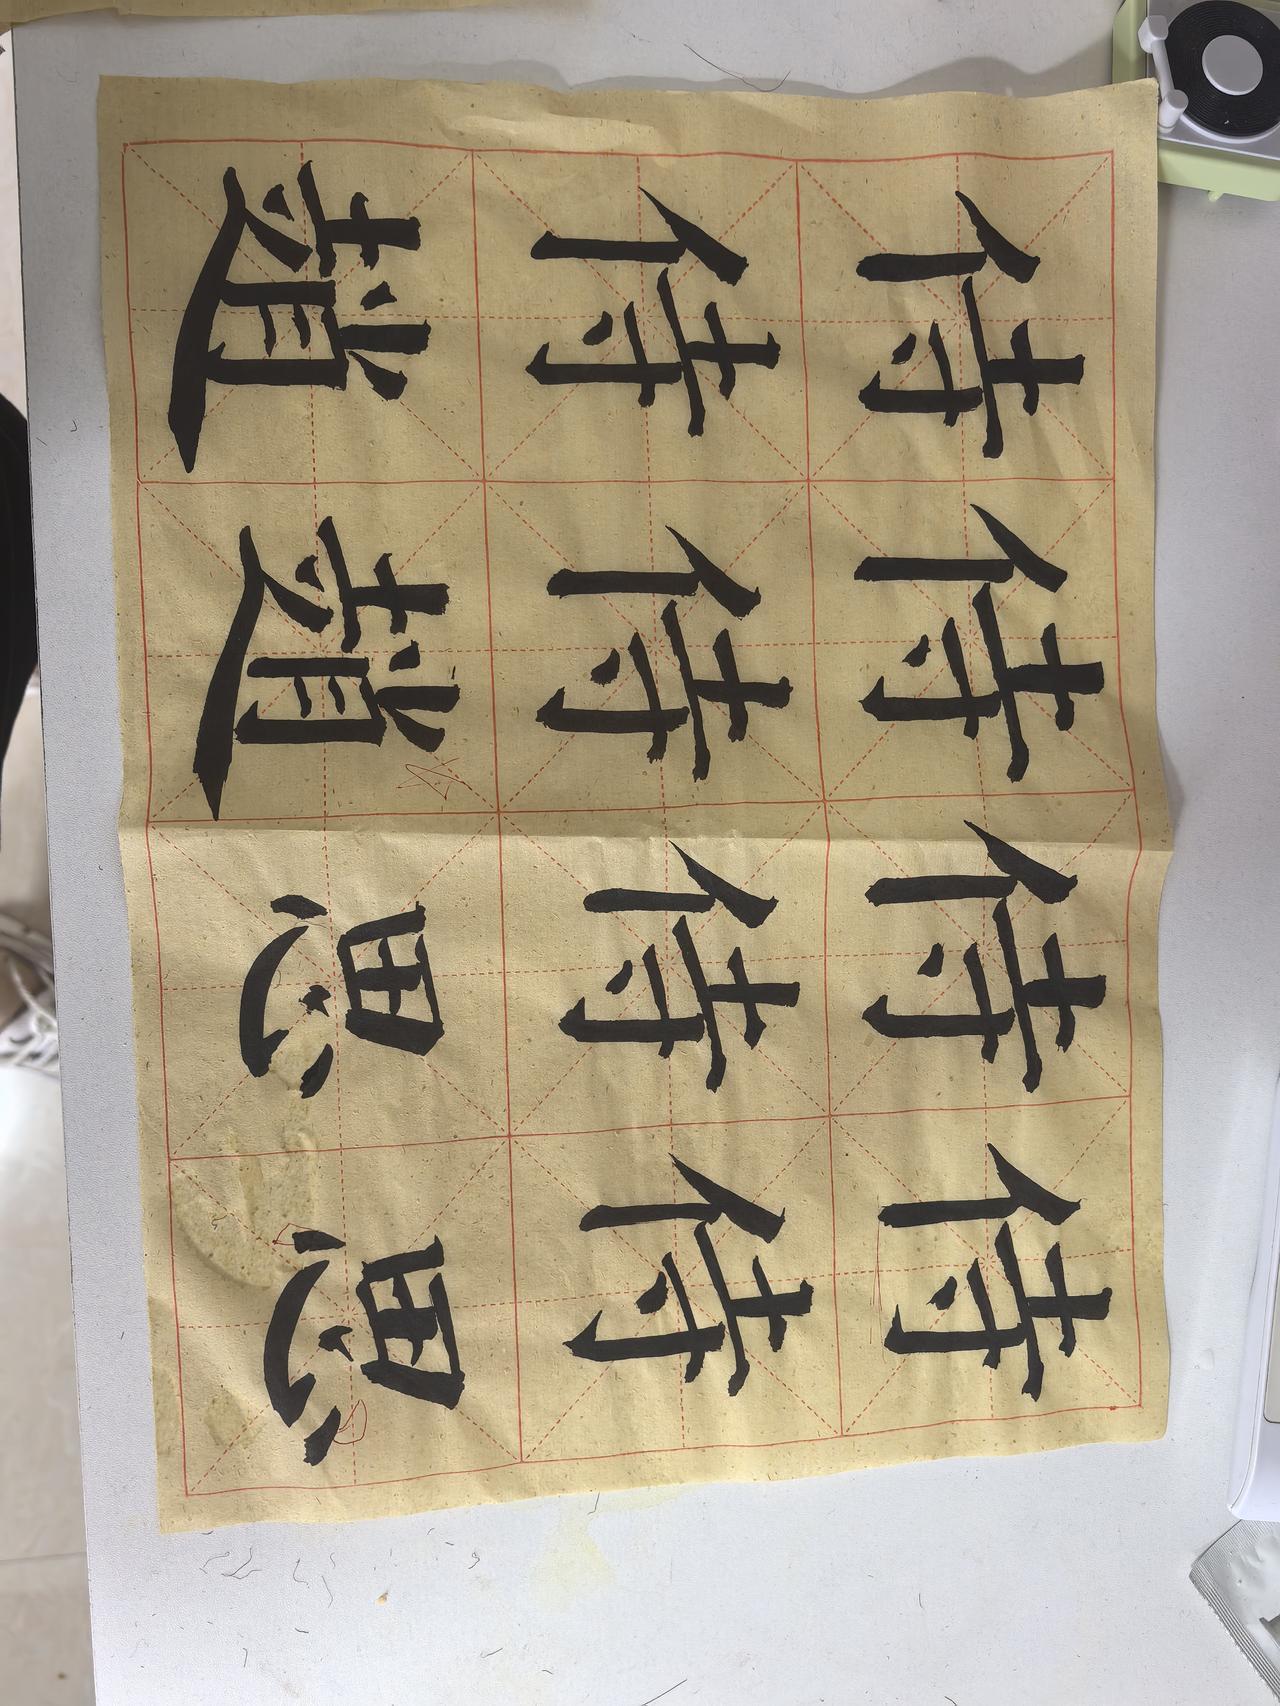 侍侍侍侍
侍侍侍侍
趙趙思思